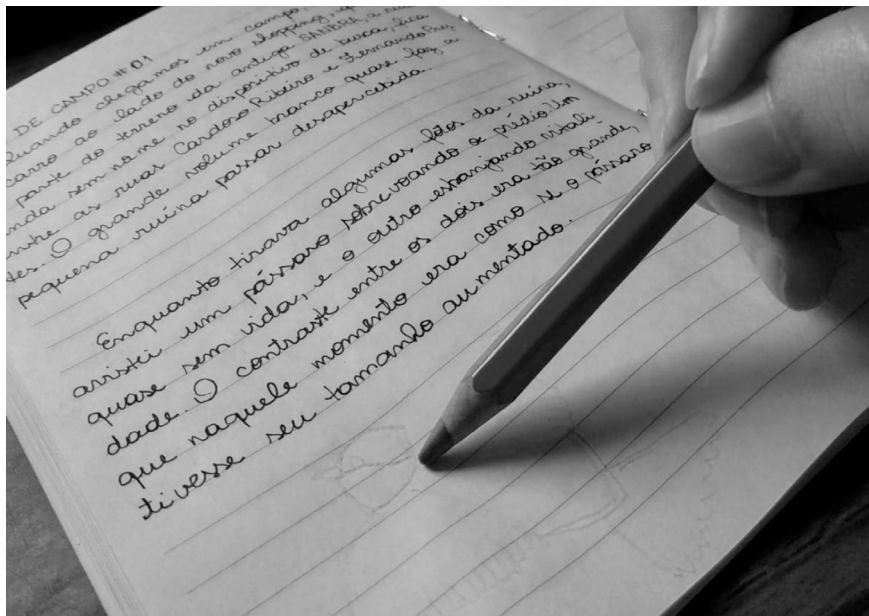 DE CAMPO #01
quando chegamos em campo,
carro ao lado do novo shopping, q
parte do terreno da antiga SANBRA, a rua
nda sem nome no dispositivo de busca, fica
entre as ruas Cardoso Ribeiro e Fernando
tes. O grande volume branco quase faz a
pequena ruína passar desapercebida.
Enquanto tirava algumas fotos da ruína,
avistei um pássaro sobrevoando o prédio. Um
quase sem vida, e o outro esbanjando vitali-
dade. O contraste entre os dois era tão grande,
que naquele momento era como se o pássaro
tivesse seu tamanho aumentado.